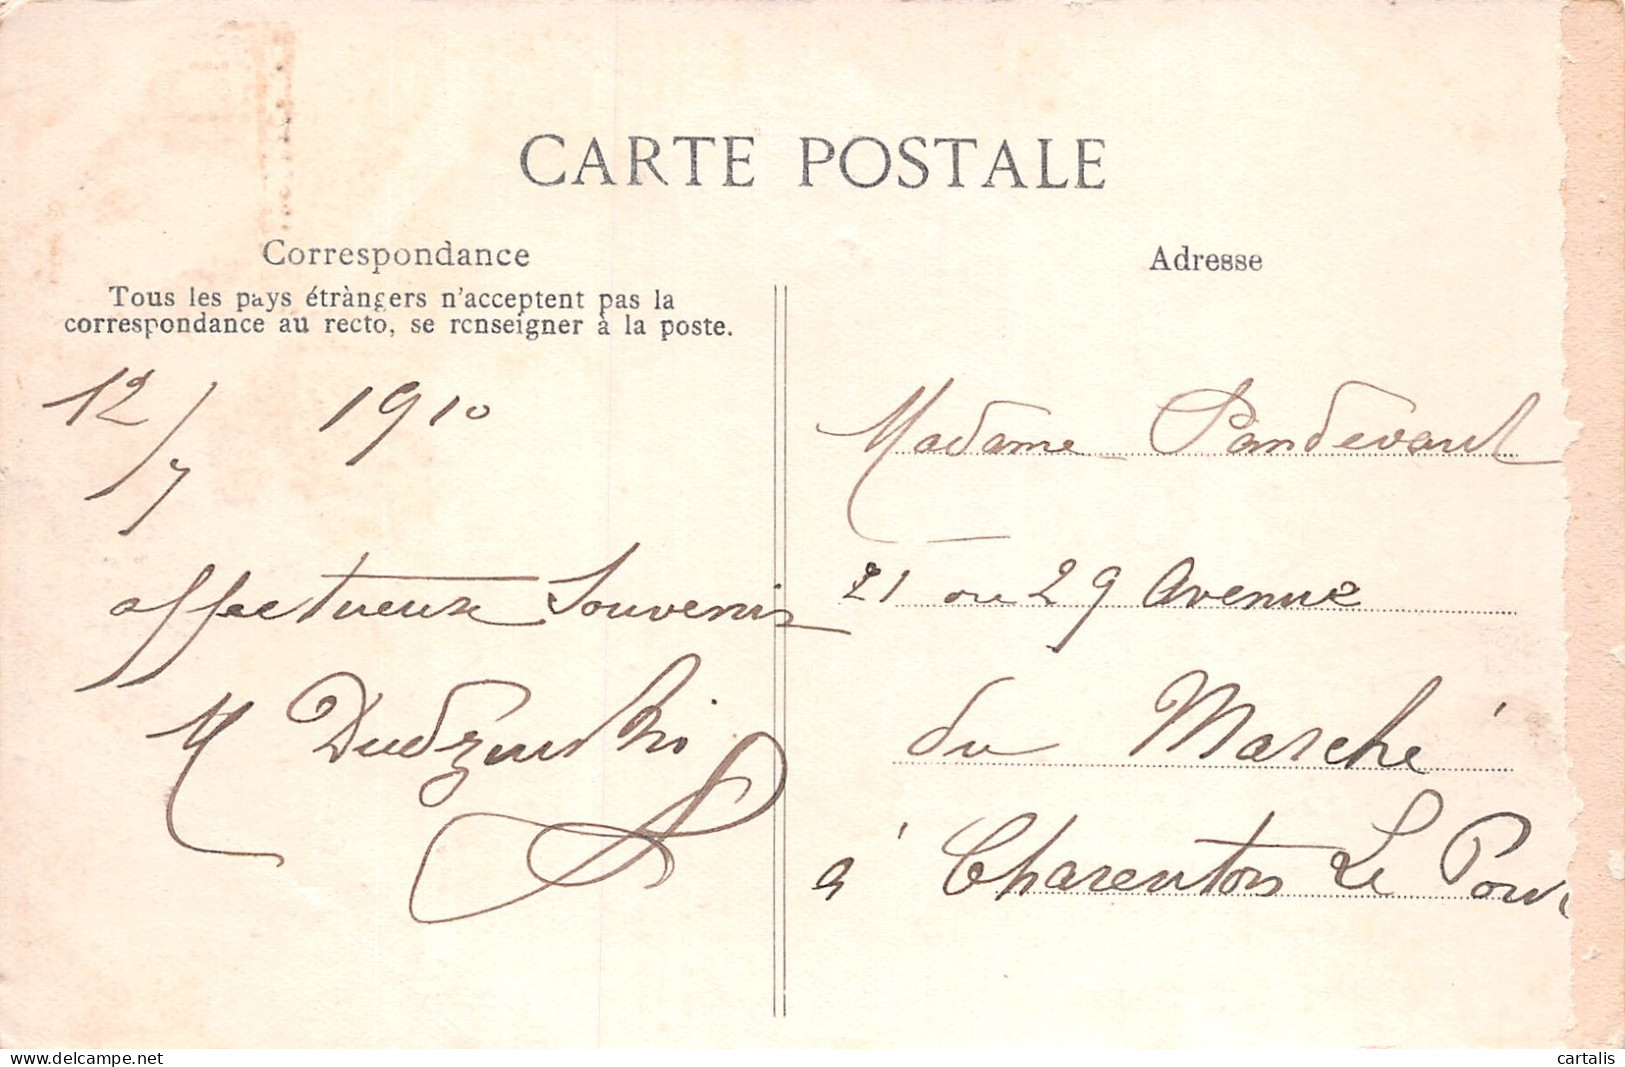 CARTE POSTALE
Correspondance
Tous les pays étràngers n'acceptent pas la
correspondance au recto, se renseigner à la poste.
12/7 1910
affectueux Souvenir
M Dudzinski
Adresse
Madame Pandevant
21 ou 29 Avenue
du Marché
à Charenton Le Pont
cartalis